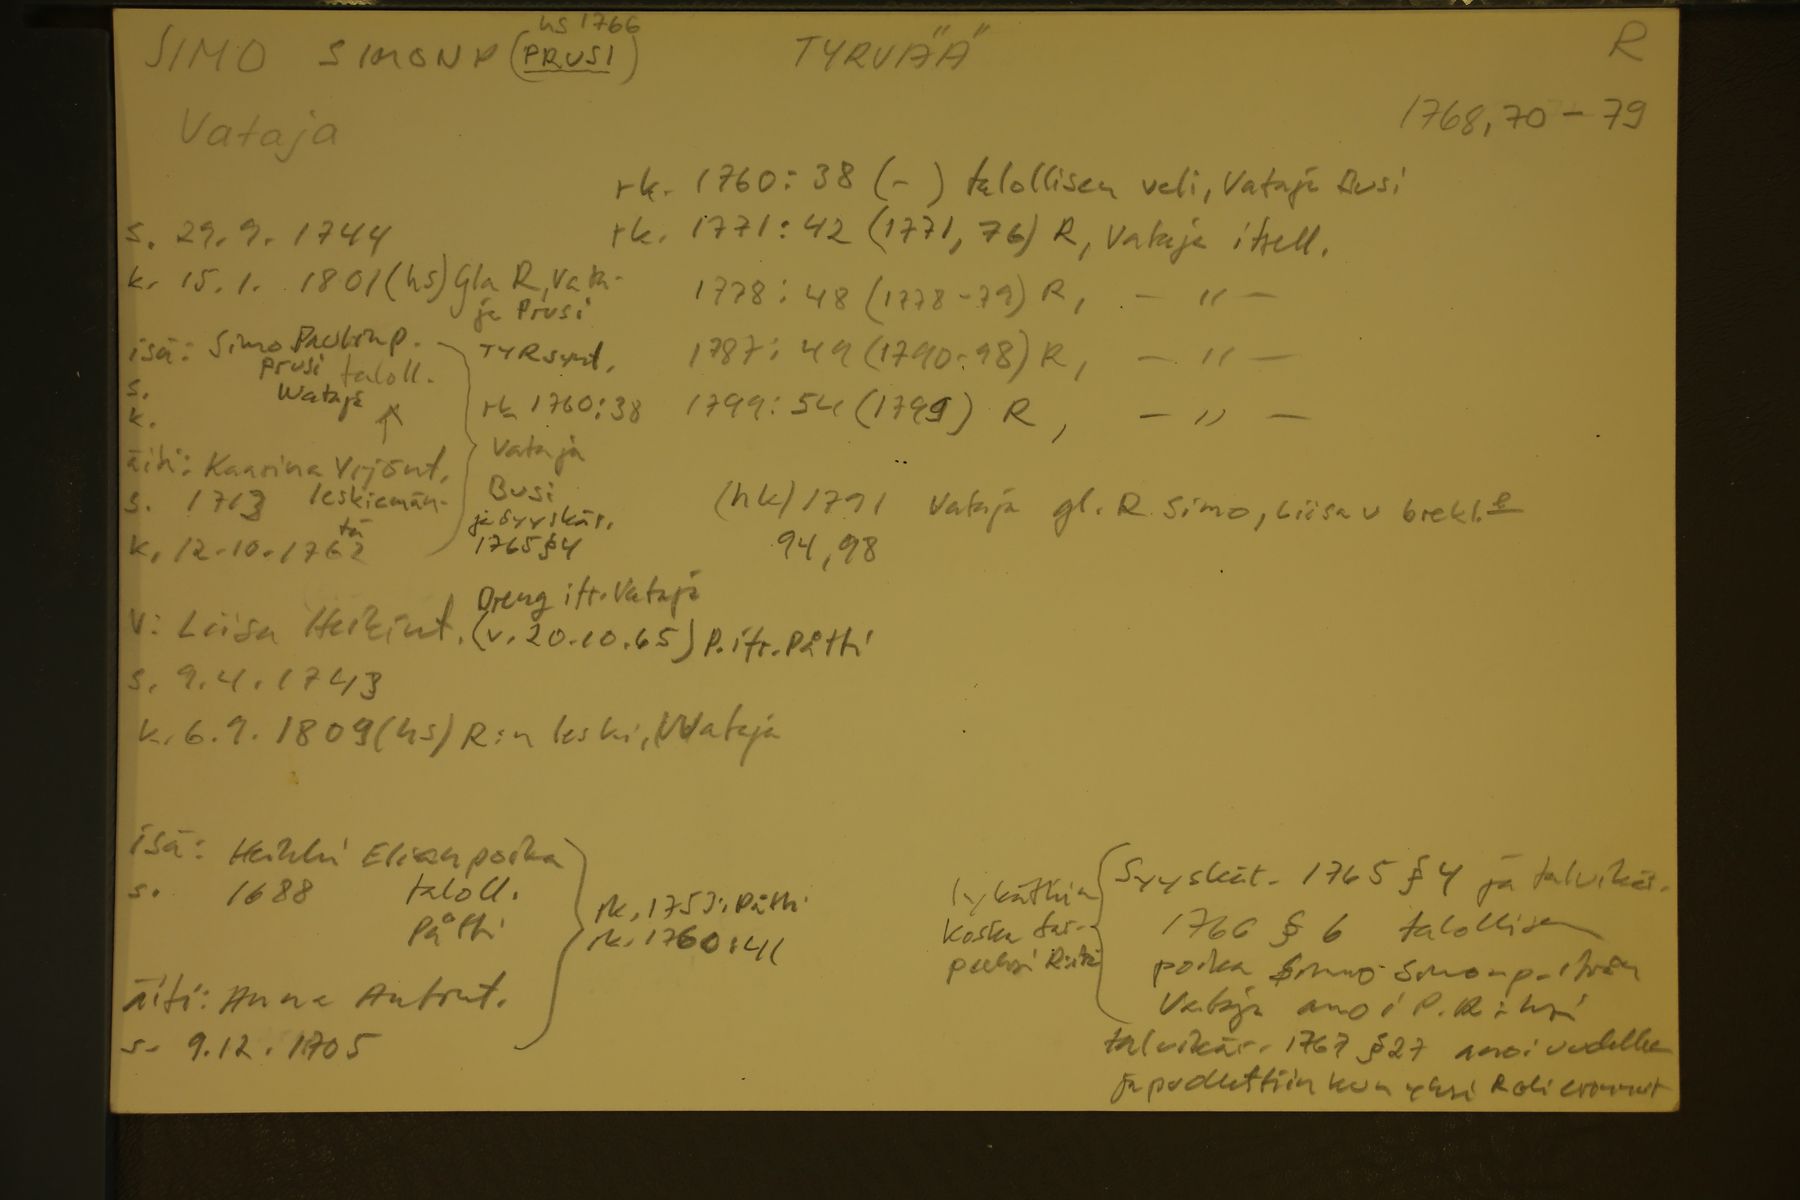 hs 1766
SIMO SIMONP (PRUSI) TYRVÄÄ R
Vataja 1768,70-79
rk. 1760:38 (-) talollisen veli, Vataja Busi
s. 29.9.1744 rk. 1771:42 (1771, 76) R, Vataja itsell.
k. 15.1. 1801 (hs) Gla R, Vata-
ja Prusi
1778:48 (1778-79) R, - " -
isä: Simo Paulinp.
Prusi taloll.
Wataja
s.
k.
TYRsynt.
rk 1760:38
Vataja
Busi
ja syyskär.
1765 §4
1787:49 (1790-98) R, - " -
1799:54 (1799) R, - " -
äiti: Kaarina Yrjönt.
s. 1713 leskiemän-
tä
k. 12.10.1762
(hk) 1791 Vataja gl. R Simo, Liisa v brekl.
94,98
Dreng itr. Vataja
v: Liisa Heikint. (v. 20.10.65) P. itr. Påthi
s. 9.4.1743
k. 6.9.1809 (hs) R:n leski, Wataja
isä: Heikki Elianpoika
s. 1688 taloll.
Påthi
rk. 1753: Påthi
rk. 1760:41
äiti: Anna Antint.
s. 9.12.1705
lykättiin
koska tar-
peeksi R:itä
Syyskär. 1765 §4 ja talvikär.
1766 § 6 talollisen
poika Simo Simonp.
Vataja anoi P. R:ksi
talvikär. 1767 §27 anoi uudelleen
ja puollettiin kun yksi R oli eronnut